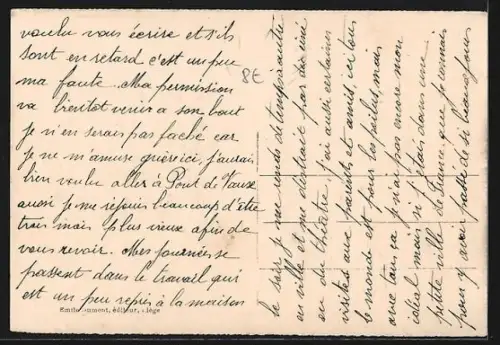 voulu vous écrire et s'ils
sont en retard c'est un peu
ma faute. Ma permission
va bientot venir a son bout
je n'en serais pas faché car
je ne m'amuse guère ici, j'aurais
bien voulu aller à Pont de Vaux
aussi je me réjouis beaucoup d'être
trois mois plus vieux afin de
vous revoir. Mes journées se
passent dans le travail qui
est un peu repris à la maison
8E
Emile Dumont, éditeur, Liège
le soir je me rends de temps à autre
en ville et me distrait par du ciné
ou du théatre, j'ai aussi certaines
visites aux parents et amis, ici tous
le monde est pour les poilus, mais
avec tous ça je n'ai pas encore mon
idéal mais si j'étais dans une
petite ville de France que je connais
pour y avoir passé de si beaux jours